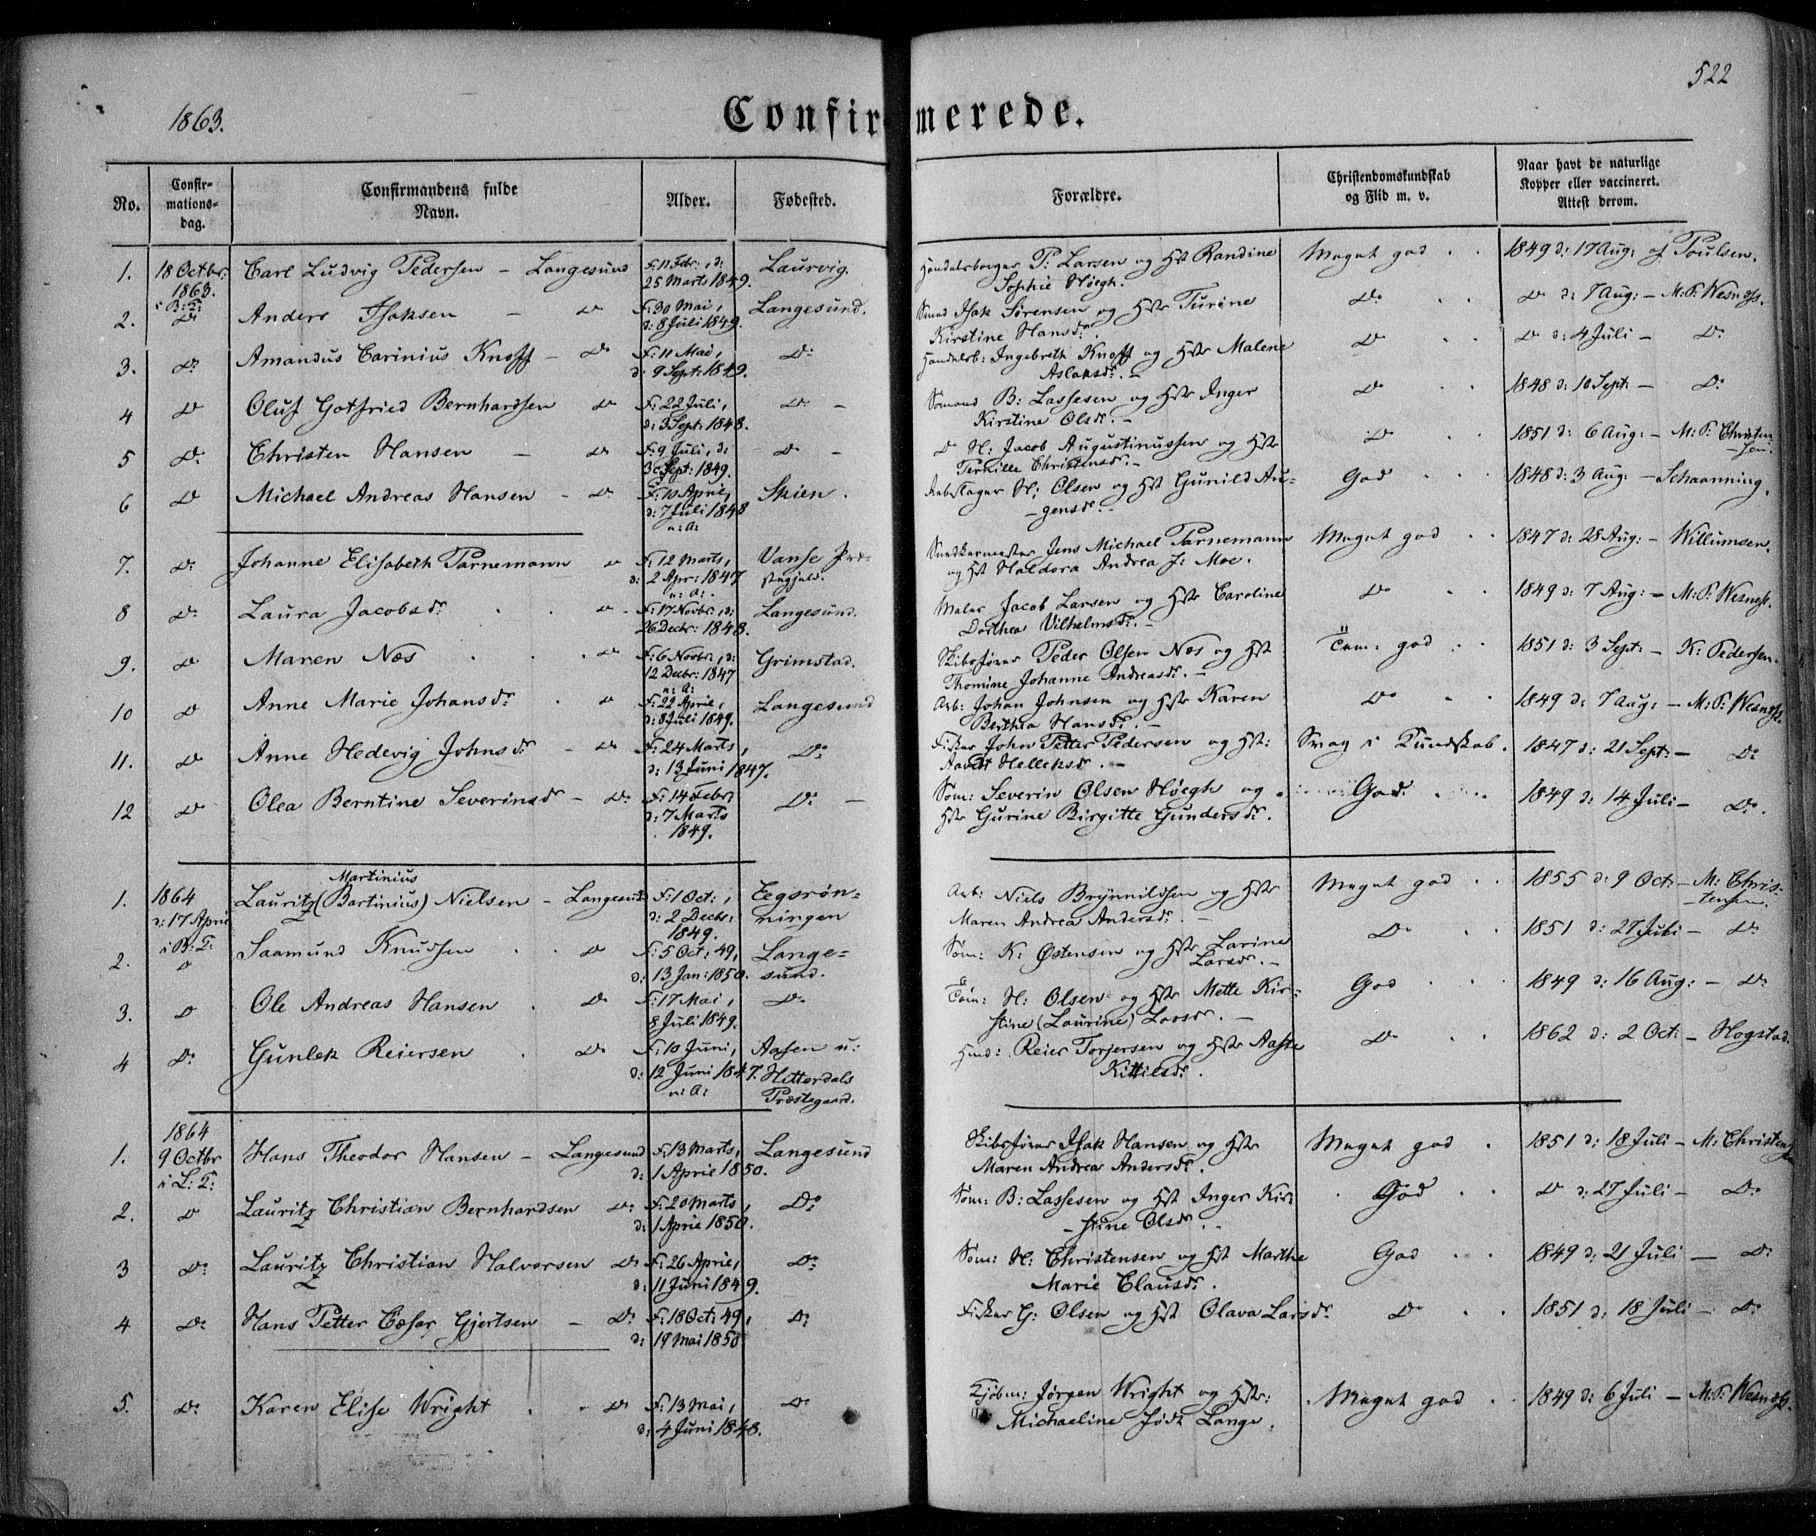 1863.
Confirmerede.
522
No.
Confir-
mations-
dag.
Confirmandens fulde
Navn.
Alder.
Fødested.
Forældre.
Christendomskundskab
og Flid m. v.
Naar havt de naturlige
Kopper eller vaccineret.
Attest derom.
1. 18 Octbr: 1863. i B: T: Carl Ludvig Pedersen – Langesund F: 11 Febr:, d: 25 Marts 1849. Laurvig. Handelsborger P: Larsen og Hst Randine Sophie Høegh. Meget god 1849 d: 17 Aug: af Poulsen.
2. Do Anders Isaksen – Do F: 30 Mai, d: 8 Juli 1849. Langesund. Smed Isak Sørensen og Hstr Turine Kirstine Hansdr. Do Do d: 7 Aug: – M: P: Wesnæss.
3. Do Amandus Carinius Knoff – Do F: 11 Mai, d: 9 Sept: 1849. Do: Handelsb: Ingebreth Knoff og Hstr Malene Aslaksdr. – Do Do d: 4 Juli – Do
4 Do Oluf Gotfried Bernhardsen Do F: 22 Juli, d: 3 Sept: 1848. Do – Sømand B: Lassesen og Hstr Inger Kirstine Olsdr. – Do 1848 d: 10 Sept: – Do:
5 Do: Christen Hansen – Do F: 9 Juli, d: 30 Sept: 1849. Do – Do H: Jacob Augustinussen og Hstr Pernille Christensdr. – Do 1851 d: 6 Aug: – M: P: Christen-
sen.
6 Do Michael Andreas Hansen – Do F: 10 April, d: 7 Juli 1848 u: A: Skien. H: Olsen og Hst Gunild Au-
gensdr. – God 1848 d: 3 Aug: – Schaanning.
7. Do: Johanne Elisabeth Parnemann Do F: 12 Marts, d: 2 Apr: 1847 u: A: Vanse Præ-
stegjeld. Jens Michael Parnemann og Hst Haldora Andrea f: Moe. Meget god 1847 d: 28 Aug: – Willumsen.
8 Do: Laura Jacobsdr Do F: 17 Novbr:, d: 26 Decbr: 1848. Langesund. Maler Jacob Larsen og Hstr Caroline Dorthea Vilhelmsdr. – Do 1849 d: 7 Aug: – M: P: Wesness.
9. Do Maren Næs Do F: 6 Novbr, d: 12 Decbr: 1847 u: A: Grimstad. Skibsfører Peder Olsen Næs og Hst Thomine Johanne Andreasdr. – Tem: god 1851 d: 3 Sept: – K: Pedersen.
10 Do Anne Marie Johansdr Do F: 22 April, d: 8 Juli 1849. Langesund Arb: Johan Johnsen og Hstr Karen Berthea Hansdr. – Do 1849 d: 7 Aug: – M: P: Wesness.
11. Do Anne Hedevig Johnsdr – Do F: 24 Marts, d: 13 Juni 1847. Do: Fisker John Petter Pedersen og Hst: Helleksdr. – Svag i Kundskab. 1847 d: 21 Sept: – Do:
12 Do Olea Berntine Severinsdr – Do: F: 14 Febr: d: 7 Marts 1849. Do: – Søm: Severin Olsen Høegh og Hstr Gurine Birgitte Gundersdr. God. 1849 d: 14 Juli – Do.
1. 1864 d: 17 April i B: T: Lauritz (Bartinius) Martinius Nielsen – Langesund F: 1 Oct:, d: 2 Decbr: 1849. Eegsrøn-
ningen Arb: Niels Brynnildsen og Hstr Maren Andrea Andersdr. – Meget god 1855 d: 9 Oct: – M: Chris-
tensen.
2. Do Saamund Knudsen Do F: 5 Oct: 49, d: 13 Jan: 1850. Lange-
sund. Søm: K: Østensen og Hstr Larine Larsdr. – Do 1851 d: 27 Juli – Do
3. Do Ole Andreas Hansen Do F: 17 Mai, 8 Juli 1849. Do. Tøm: H: Olsen og Hstr Mette Kir-
stine (Laurine) Larsdr. – God 1849 d: 16 Aug: – Do:
4 Do: Gunlek Reiersen Do: F: 10 Juni, d: 12 Juni 1847. u: A: Aasen u: Hitterdals Præstegaard. Reier Torjersen og Hstr Aaste Kittilsdr. Do 1862 d: 2 Oct: – Hogstad.
1. 1864 9 Octbr i L: T: Hans Theodor Hansen – Langesund F: 13 Marts, d: 1 April 1850. Langesund Skibsfører Isak Hansen og Hstr Maren Andrea Andersdr. Meget god 1851 d: 18 Juli – M: Christensen
2. Do Lauritz Christian Bernhardsen Do: F: 20 Marts, d: 1 April 1850. Do: Søm: B: Lassesen og Hst Inger Kir-
stine Olsdr. – God Do d: 27 Juli – Do:
3 Do: Lauritz Christian Halvorsen Do: F: 26 April, d: 11 Juni 1849. Do: Søm: H: Christensen og Hst Marthe Marie Clausdr. God 1849 d: 21 Juli – Do:
4 Do: Hans Petter Cæsar Gjertsen – Do: F: 18 Oct: 49, d: 19 Mai 1850 Do: Fisker G: Olsen og Hst Olava Larsdr Do 1851 d: 18 Juli – Do:
5. Do: Karen Elise Wright – Do F: 13 Mai, d: 4 Juni 1848. Do: Kjøbm: Jørgen Wright og Hstr: Michaeline født Lange. Meget god 1849 d: 6 Juli – M: P: Wesnæss.